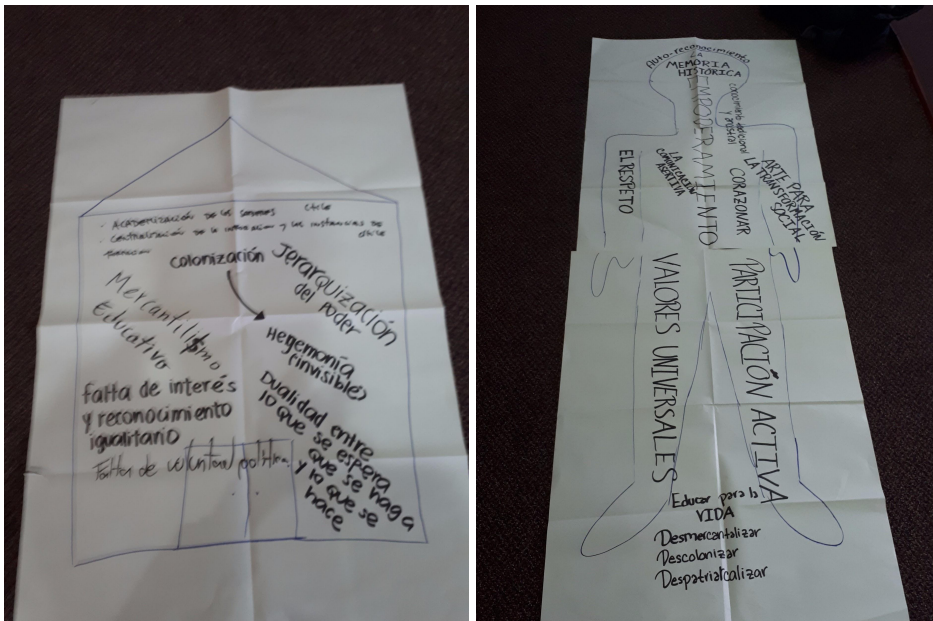 · Academización de los saberes Chile
· Centralización de la información y las instancias de
colonización
Jerarquización
del poder
Mercantili$mo
Educativo
Hegemonía
(invisible)
falta de interés
y reconocimiento
igualitario
Dualidad entre
lo que se espera
que se haga
y lo que se
hace
Falta de voluntad política
Auto-reconocimiento
LA
MEMORIA
HISTÓRICA
EMPODERAMIENTO
conocimiento
y ancestral
EL RESPETO
LA
COMUNICACIÓN
ASERTIVA
CORAZONAR
ARTE PARA
LA TRANSFORMACIÓN
SOCIAL
VALORES UNIVERSALES
PARTICIPACIÓN ACTIVA
Educar para la
VIDA
Desmercantalizar
Descolonizar
Despatriarcalizar